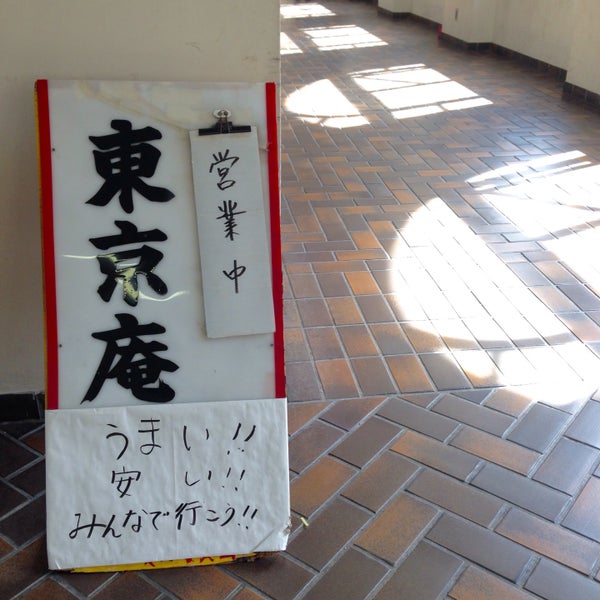 東京庵
営業中
うまい!!
安い!!
みんなで行こう!!